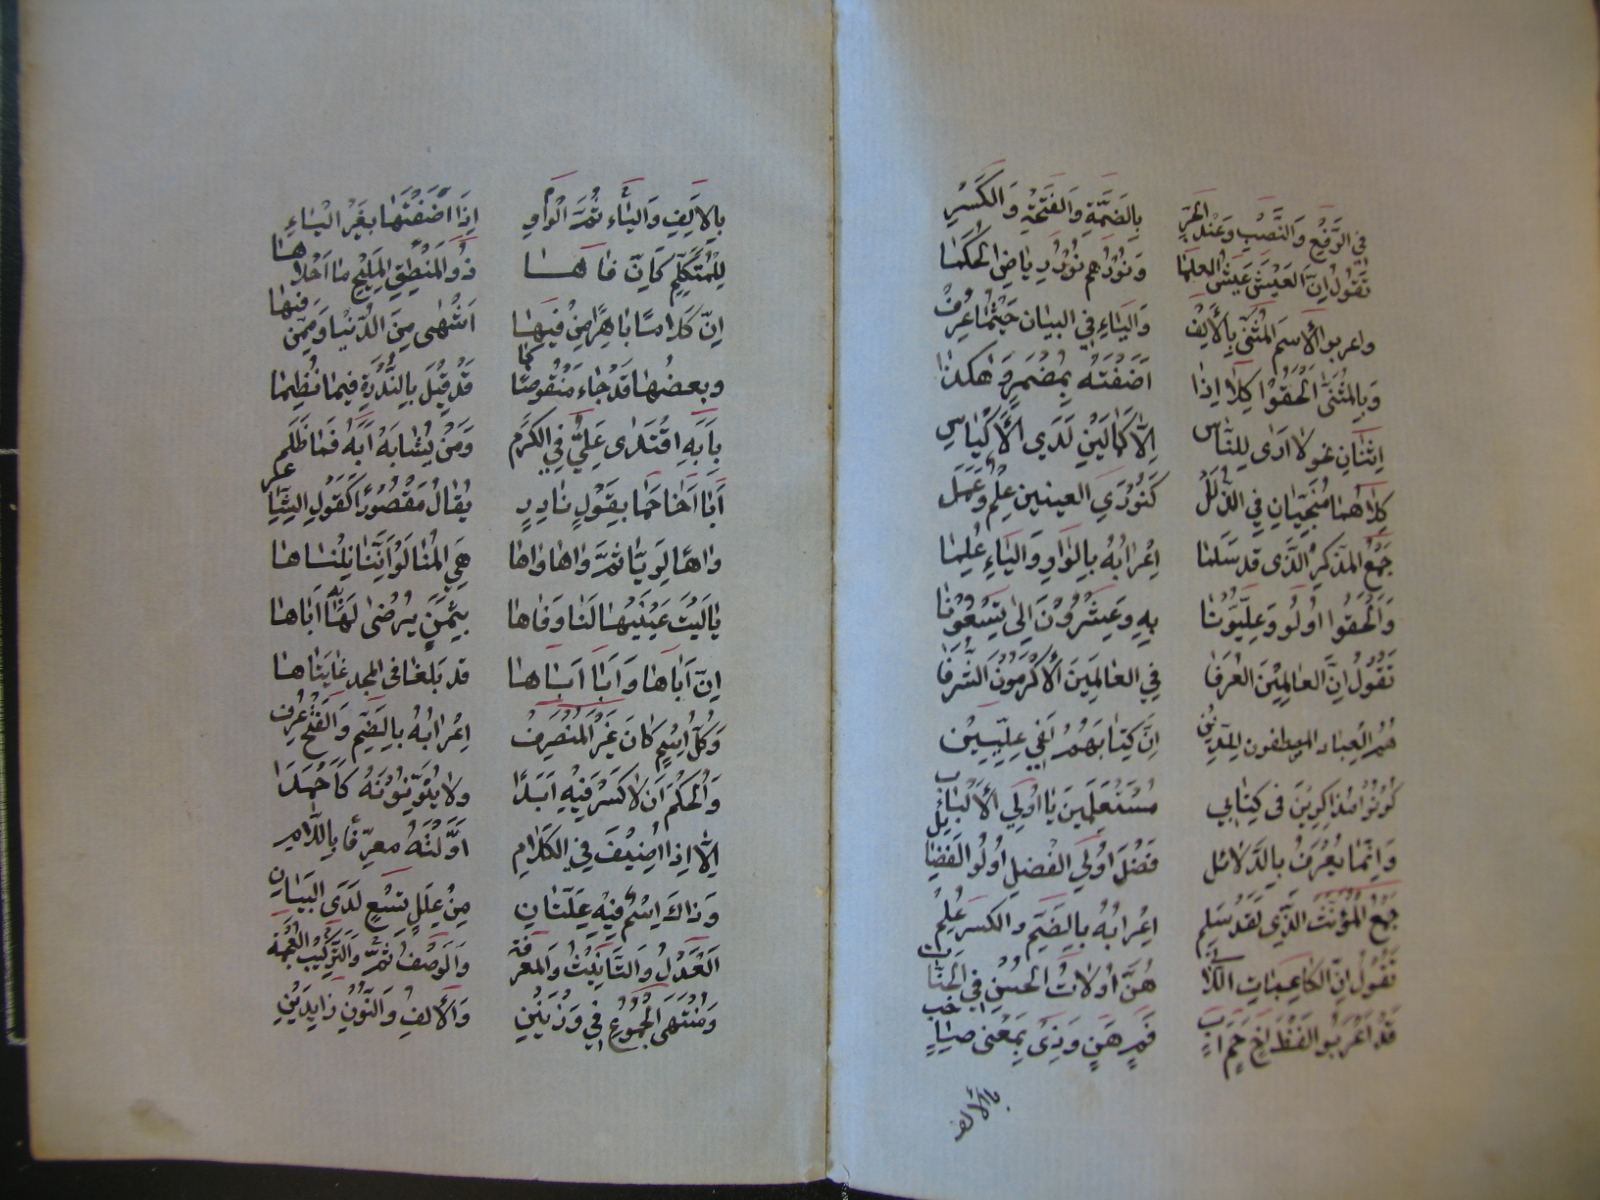 في الرفع والنصب وعند الجر بِالضَمَّةِ وَالفَتْحَةِ وَالكَسْرِ
تَقُولُ اِنَّ العَيْشَ عَيْشُ العلما وَنورهم نور رياض الحكما
واعربوا الأسم المُثَنّى بِالأَلِفْ وَاليَاءِ في البيان حَيْثُمَا عُرِفْ
وَبِالمُثَنّى اَلْحَقُوْا كِلَا اِذا اَضَفْتَهُ بِمُضْمَرٍ وَهٰكذا
اِثنَانِ نحو لا اَرٰى لِلنَّاسِ اِلَّا كَمَالَيْنِ لَدَي الأَكْيَاسِ
كِلَاهُمَا مُنْجِيَانِ في كَنُورَيِ العينين عِلْمٌ وَعَمَل
جَمْعُ المذكرِ الَّذى قد سَلَمَا اِعْرَابُهُ بِالوَاوِ وَاليَاءِ عُلِمَا
وَاَلْحقوا اولُو وَعِلِّيُّونَا بِهِ وَعِشْرُوْنَ اِلى تِسْعُوْنَا
تَقُوْلُ اِنَّ العالِمِيْنَ العُرَفَا فِي العالَمِيْنَ الأَكْرَمُوْنَ الشُّرَفَا
هُمُ العِبَاد المصطفون اِنَّ كِتَابَهُمْ لَفي عِلِّيِّيْن
كُونُوْا مُذاكِرِيْنَ في كِتَابي يَا اُولي الأَلْبَابِ
وَاِنَّمَا يُعْرَفُ بِالدَّلائل فَضْلَ اُولي الفضلِ اُولُو الفَضَائل
جَمْعُ المُؤَنَّثِ الَّذي لَقَدْ سَلِم اِعْرَابُهُ بِالضَمِّ والكسر عُلِمْ
تَقُوْلُ اِنَّ الكاعِبَاتِ هُنَّ اُولَاتُ الحُسْنِ في الجَنَّات
قَدْ اَعْرَبُو الفَظَ اخٍ حَمٍ اَبٍ فَمٍ هَنٍ وَذِىْ بِمَعْنى صَاحِب
بِالاَلِفِ وَاليَاء ثُمَّ الْوَاوِ اِذَا اَضَفْتَهَا بِغَيْرِ اليَاءِ
لِلْمُتَكَلِّمِ كَاَنَّ فَاهَا ذُو المَنْطِقِ المَلِيْحِ مَا اَحْلَاهَا
اِنَّ كَلَامًا بَاهِرًا مِنْ فِيْهَا اَشْهٰى مِنَ الدُّنْيَا وَمِمَّنْ فيها
وبعضُهَا قَدْ جَاءَ مَنْقُوصًا كما قَدْ قِيْلَ بِالنُّدْرَةِ فِيمَا نُظِمَا
بِاَبِهِ اقْتَدٰى عَلِيٌّ فِي الكَرَم وَمَنْ يُشَابِه اَبَهُ فَمَا ظَلَم
اَبَا اَخَا حَمَا بِقَوْلٍ نَادِرٍ يُقَالُ مَقْصُوْرًا كَقَوْلِ الشَّاعر
وَاهًا لِرَيَّا ثُمَّ وَاها وَاها هِيَ المُنَا لَوْ اَنَّنَا نِلْنَاهَا
يَا لَيْتَ عَيْنَيْهَا لَنَا وَفَاهَا بِثَمَنٍ يُرْضٰى لَهَا اَبَاهَا
اِنَّ اَبَاهَا وَاَبَا اَبَاهَا قد بَلَغَا في المجد غَايَتَاهَا
وَكُلُّ اِسْمٍ كَانَ غَيْرَ المُنْصَرِفْ اِعْرَابُهُ بِالضَّمِ وَالفَتْحِ عُرِف
وَالْحُكْمُ اَنْ لَا كَسْرَ فِيْهِ اَبَدًا وَلا يُنَوِّنُونَهُ كَاَحْمَدَا
اِلَّا اِذا اُضِيْفَ في الكَلَامِ اَوْ لُقِّتَه معرّفًا بِاللَّامِ
وَذَاكَ اِسْمٌ فِيْهِ عِلَّتَانِ مِنْ عِلَلٍ تِسْعٍ لَدَى البَيَان
اَلعَدْلُ وَالتَّانِيْثُ وَالمَعْرِفَة وَالوَصْفُ ثُمَّ وَالتَّرْكِيْبُ العُجْمَة
وَمُنْتَهَى الجُمُوْعِ في وَزْنَيْنِ وَالأَلِفُ وَالنُّونُ زَايِدَيْنِ